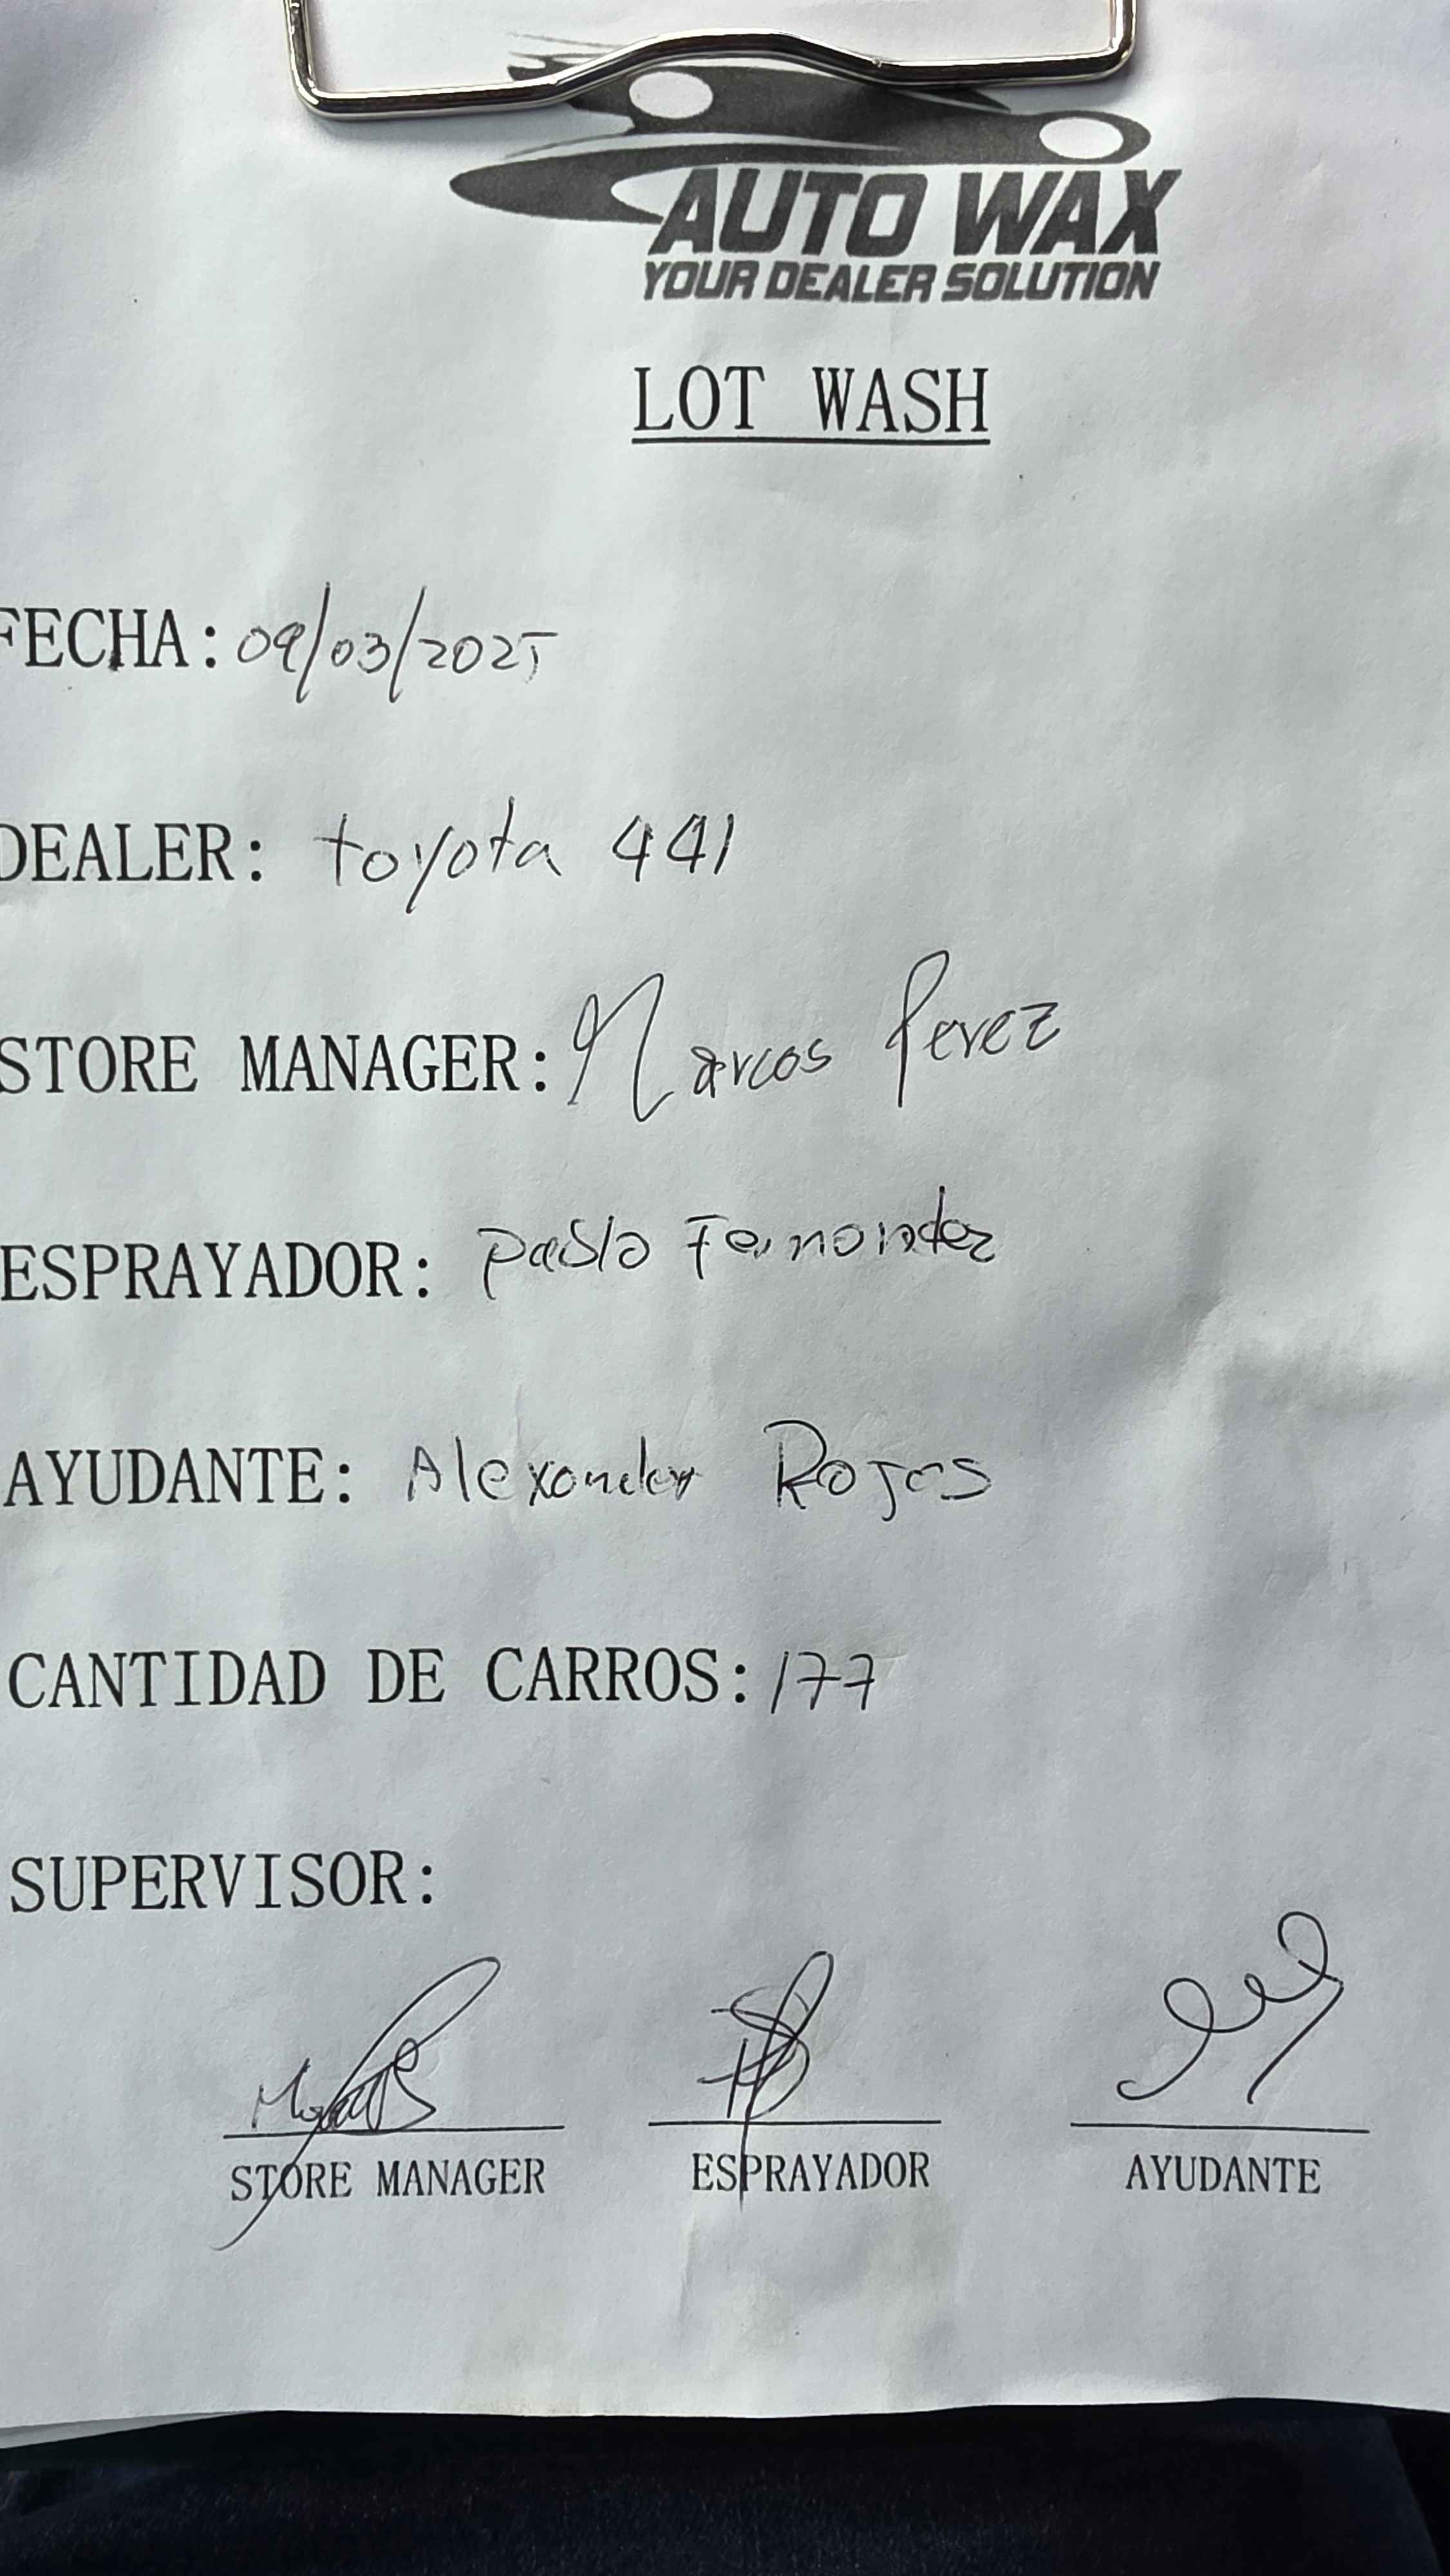 AUTO WAX
YOUR DEALER SOLUTION
LOT WASH
FECHA: 09/03/2025
DEALER: toyota 441
STORE MANAGER: Marcos Perez
ESPRAYADOR: pablo Fernandez
AYUDANTE: Alexander Rojas
CANTIDAD DE CARROS: 177
SUPERVISOR:
STORE MANAGER ESPRAYADOR AYUDANTE